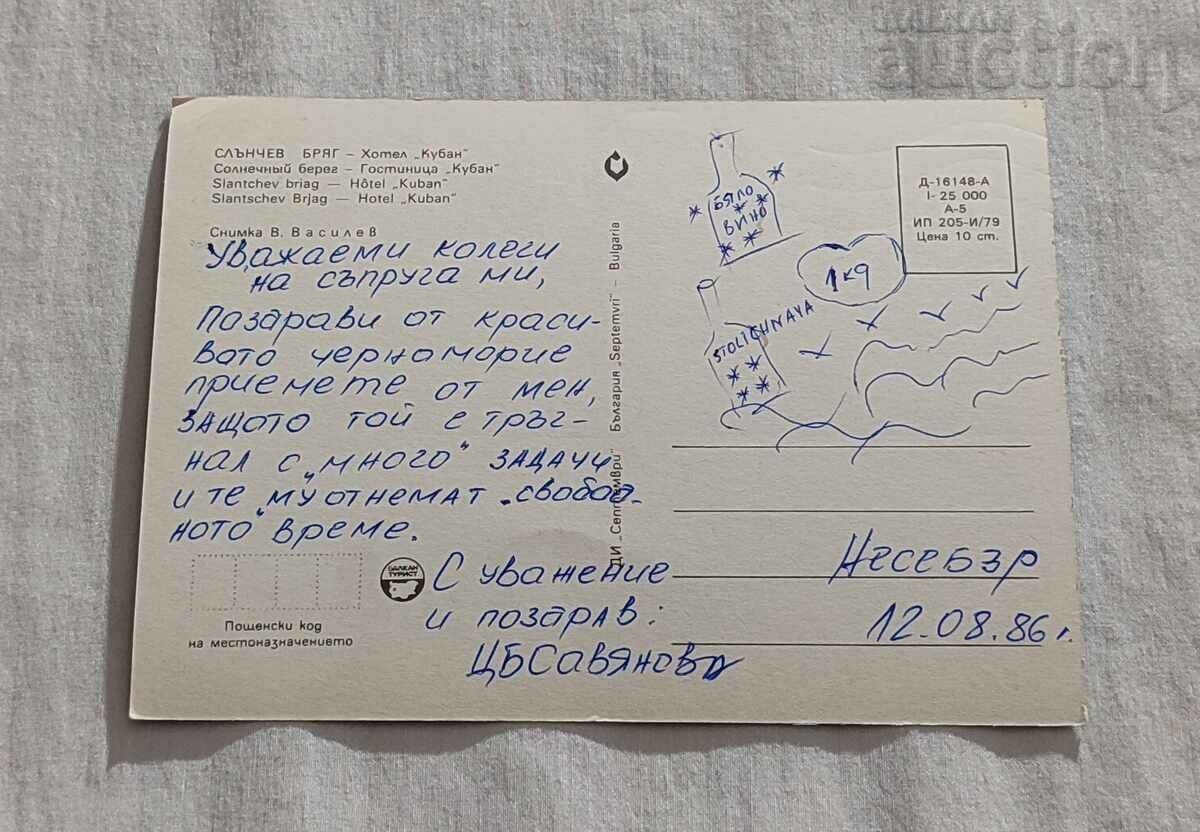 auction
СЛЪНЧЕВ БРЯГ – Хотел „Кубан“
Солнечный берег – Гостиница „Кубан“
Slantchev briag — Hôtel „Kuban“
Slantschev Brjag — Hotel „Kuban“
Снимка В. Василев
Уважаеми колеги
на съпруга ми,
Поздрави от краси-
вото черноморие
приемете от мен,
защото той е тръг-
нал с „много“ задачи
и те му отнемат „свобод-
ното“ време.
С уважение
и поздрав:
ЦБСавянова
БАЛКАН
ТУРИСТ
Пощенски код
на местоназначението
ДИ „Септември“ България „Septemvri“ - Bulgaria
БЯЛО
ВИНО
STOLICHNAYA
1 к9
Д-16148-А
I- 25 000
А-5
ИП 205-И/79
Цена 10 ст.
Несебър
12.08.86 г.